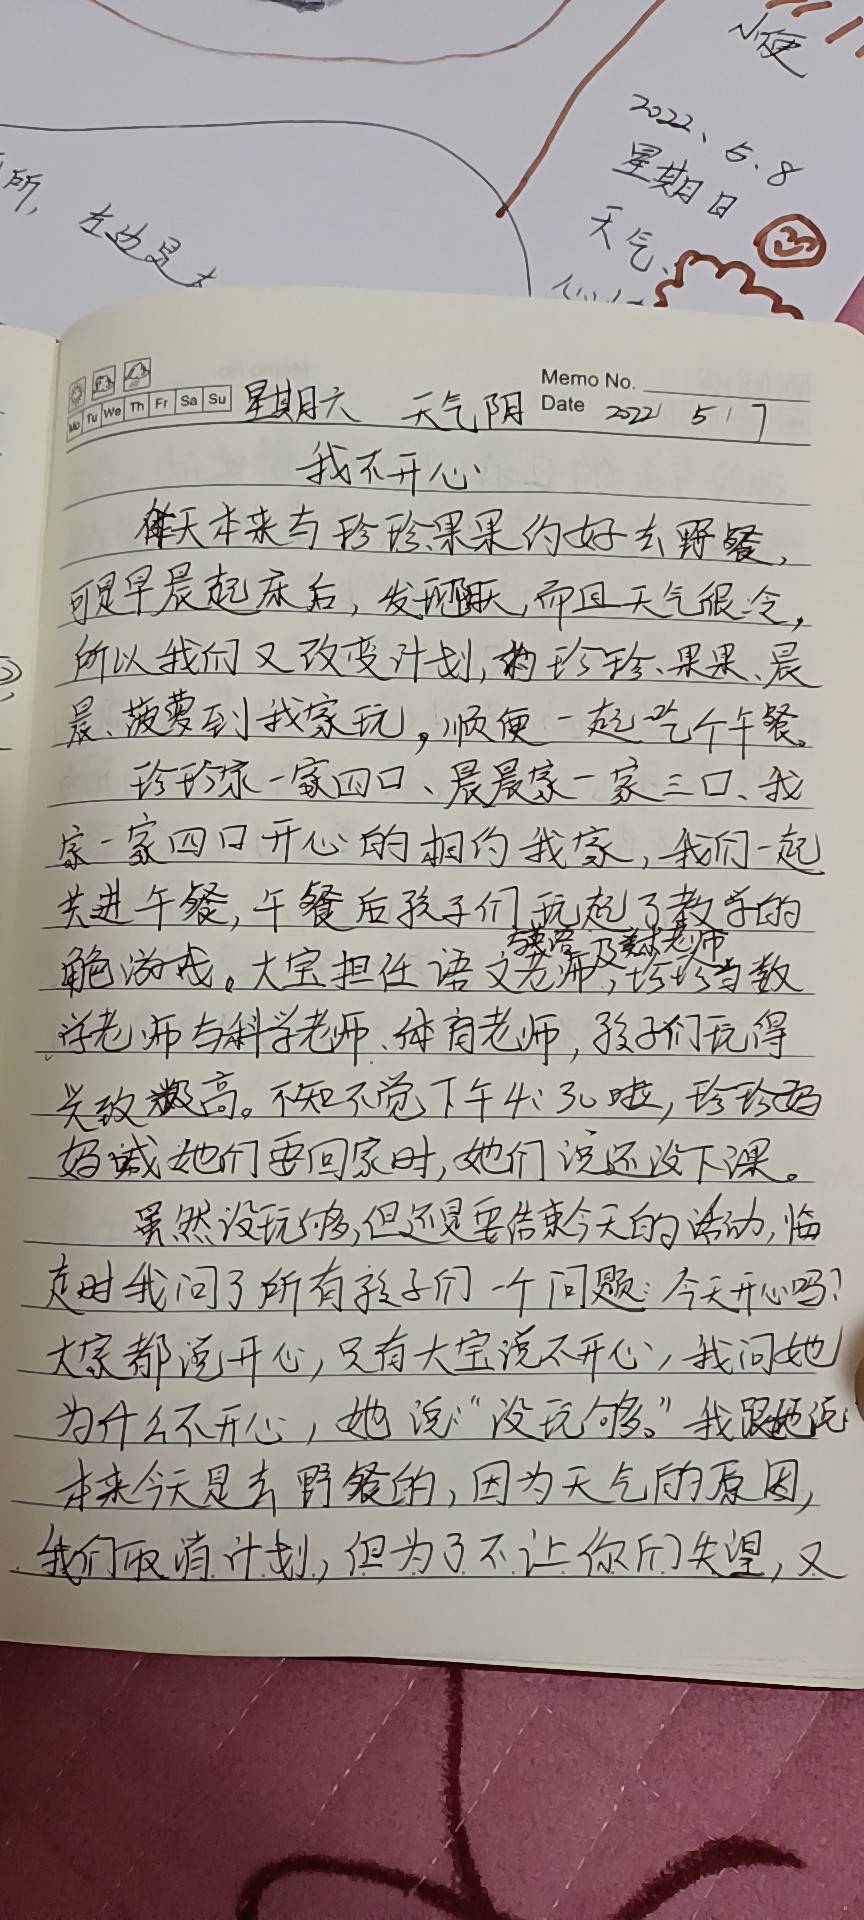 小便
2022、5.8
星期日
天气、
所,左边是
Memo No.
Mo Tu We Th Fr Sa Su 星期六 天气阴 Date 2022 5 7
我不开心
昨天本来与珍珍、果果约好去野餐,
可是早晨起床后,发现阴天,而且天气很冷,
所以我们又改变计划,约珍珍、果果、晨
晨、菠萝到我家玩,顺便一起吃个午餐。
珍珍家一家四口、晨晨家一家三口、我
家一家四口开心的相约我家,我们一起
共进午餐,午餐后孩子们玩起了教学的
角色游戏。大宝担任语文老师,珍珍当数
与英语及美术老师
学老师与科学老师、体育老师,孩子们玩得
兴致极高。不知不觉下午4:30啦,珍珍妈
妈喊她们要回家时,她们说还没下课。
虽然没玩够,但还是要结束今天的活动,临
走时我问了所有孩子们一个问题:今天开心吗?
大家都说开心,只有大宝说不开心,我问她
为什么不开心,她说:“没玩够。”我跟她说:
本来今天是去野餐的,因为天气的原因,
我们取消计划,但为了不让你们失望,又